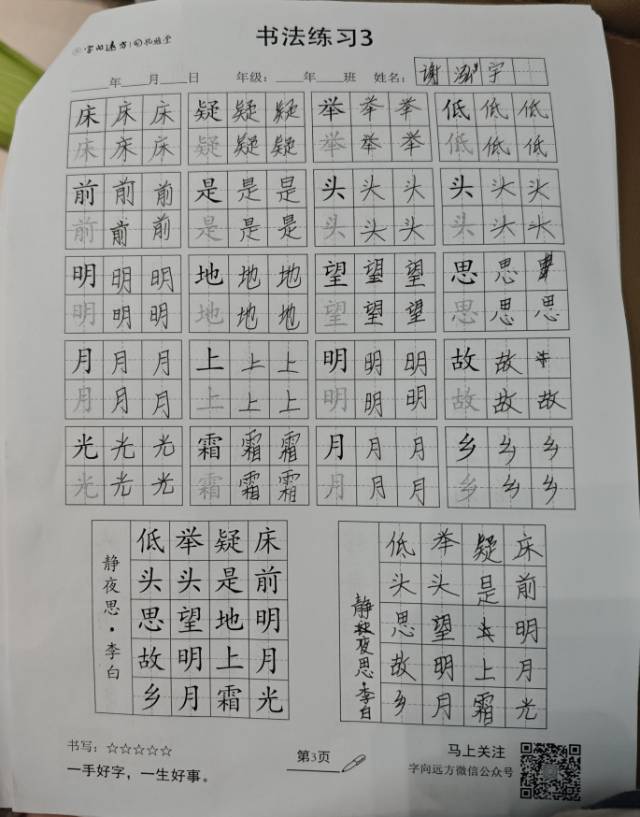 字向远方
书法练习3
年 月 日 年级: 年 班 姓名: 谢 宇
床床床 疑疑疑 举举举 低低低
床床床 疑疑疑 举举举 低低低
前前前 是是是 头头头 头头头
前前前 是是是 头头头 头头头
明明明 地地地 望望望 思思
明明明 地地地 望望望 思思思
月月月 上上上 明明明 故故
月月月 上上上 明明明 故故故
光光光 霜霜霜 月月月 乡乡乡
光光光 霜霜霜 月月月 乡乡乡
床前明月光
疑是地上霜
举头望明月
低头思故乡
静夜思·李白
床前明月光
疑是上霜
举头望明月
低头思故乡
静夜思·李白
书写:☆☆☆☆☆
一手好字,一生好事。
第3页
马上关注
字向远方微信公众号